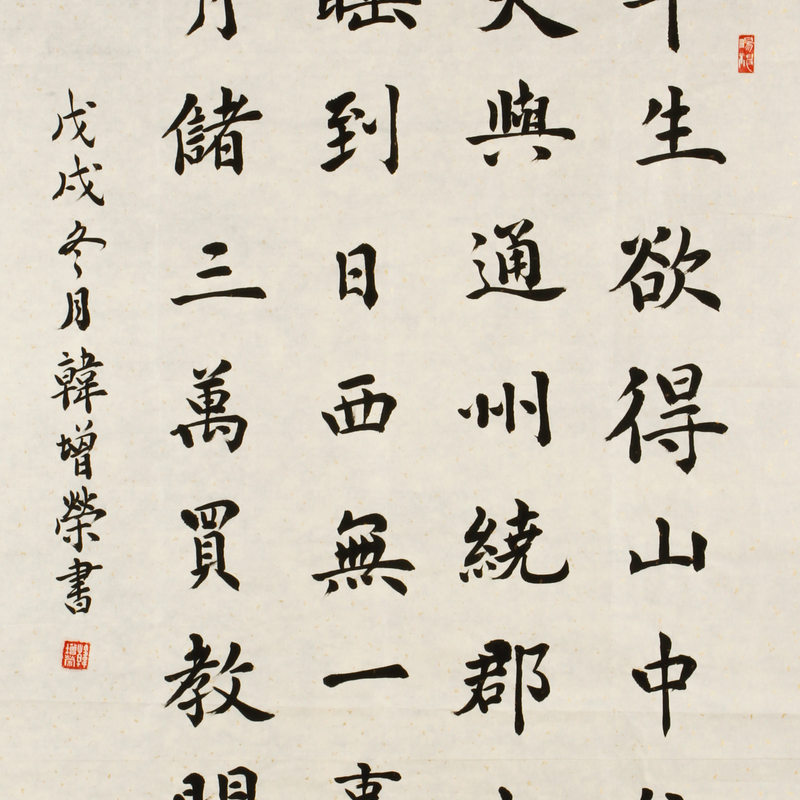 生欲得山中
天與通州繞郡
睡到日西無一事
月儲三萬買教
戊戌冬月韓增榮書
韓增榮